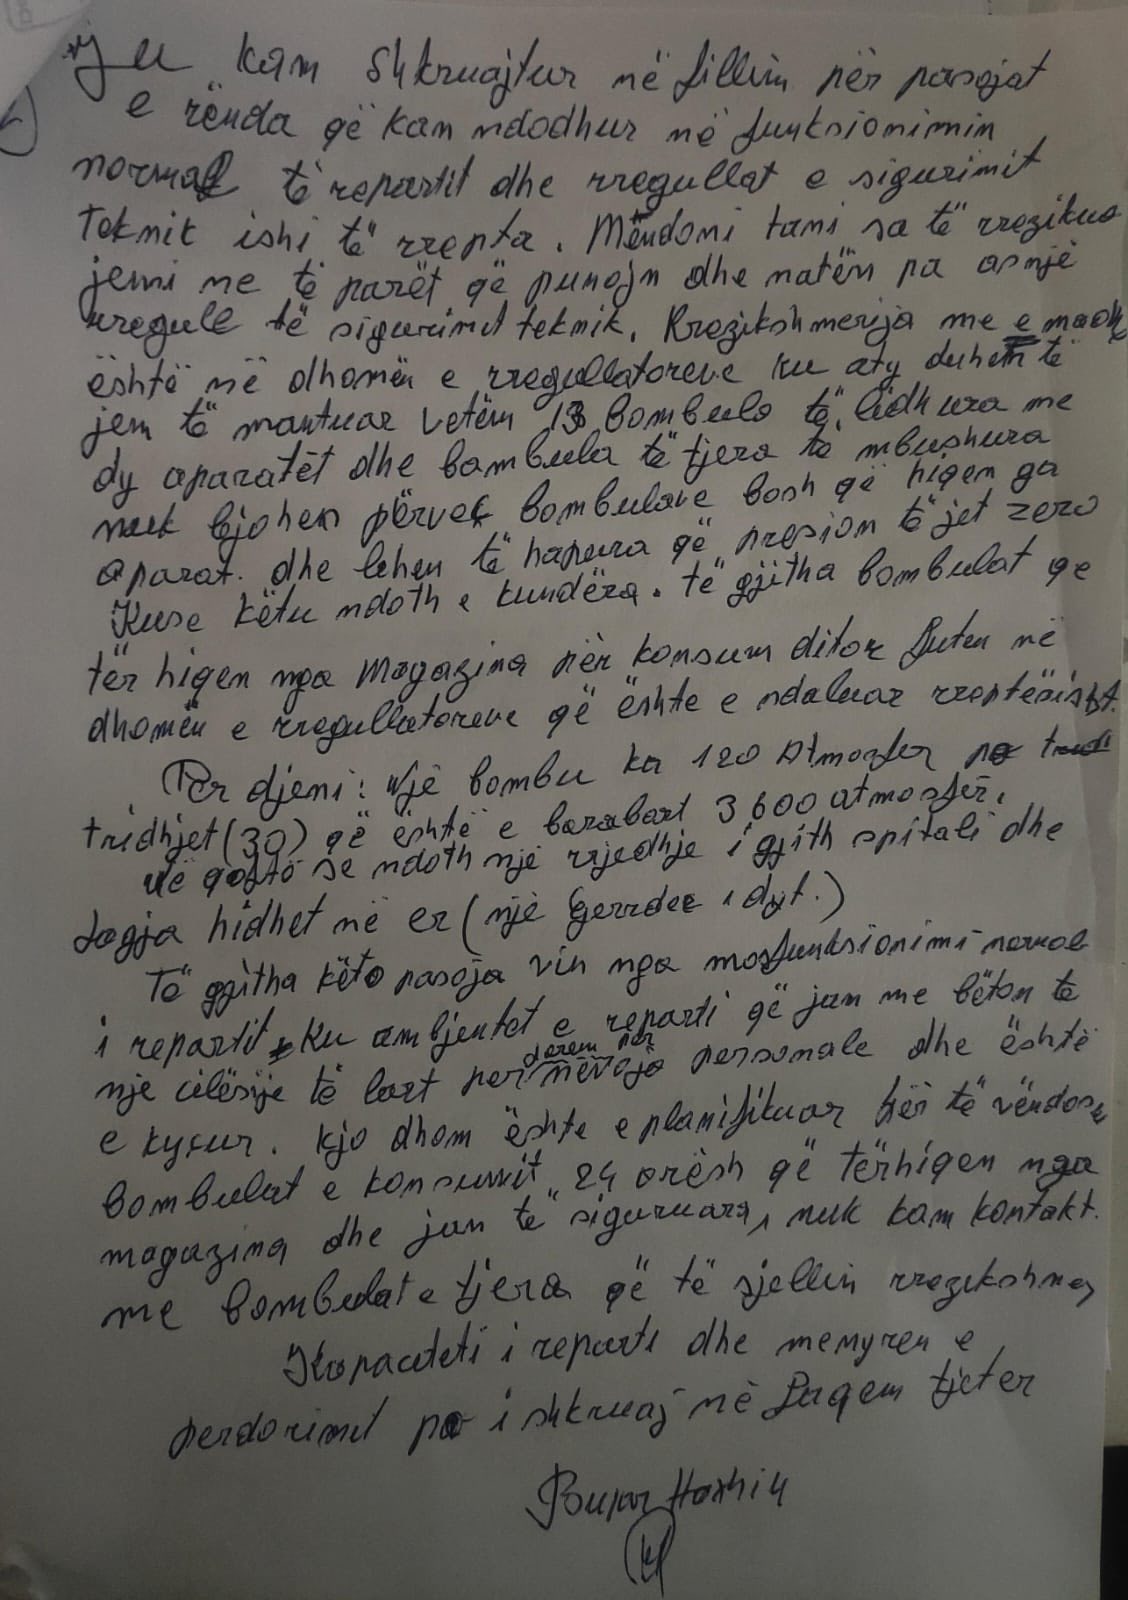 Ju kam shkruajtur në fillim për pasojat
e rënda që kan ndodhur në funksionimin
normal të repartit dhe rregullat e sigurimit
teknik ishi të rrepta. Mëndoni tani sa të rrezikuo
jemi ne të parët që punojn dhe natën pa asnjë
rregull të sigurimit teknik. Rrezikshmerija me e madh
është në dhomën e rregullatoreve ku aty duhen të
jem të mantuar vetëm 13 bombula të lidhura me
dy aparatët dhe bambula të tjera të mbushura
nuk lejohen përveç bombulave bosh që higen ga
aparat. dhe lehen të hapura që presion të jet zero
Kurse këtu ndoth e kundëra. të gjitha bombulat qe
tër higen nga Magazina për konsum ditor futen në
dhomën e rregullatoreve që është e ndaluar rreptësisht.
Për djeni: Një bombu ka 120 Atmosfer po
tridhjet (30) që është e barabart 3600 atmosfër.
në qoftë se ndoth një rrjedhje i gjith spitali dhe
lagja hidhet në er (një Gerrdec i dyt.)
Të gjitha këto pasoja vin nga mosfunksionimi normal
i repartit Ku ambjentet e reparti që jan me bëton të
nje cilësije të lart për nevoja personale dhe është
e kyçur. Kjo dhom është e planifikuar për të vëndosu
bombulat e konsumit 24 orësh që tërhiqen nga
magazina dhe jan të siguruara, nuk kam kontakt.
me bombulat e tjera që të sjellin rrezikshmëj
Kapaciteti i reparti dhe menyren e
perdorimit po i shkruaj në faqem tjeter
Bujar Hoxhiu